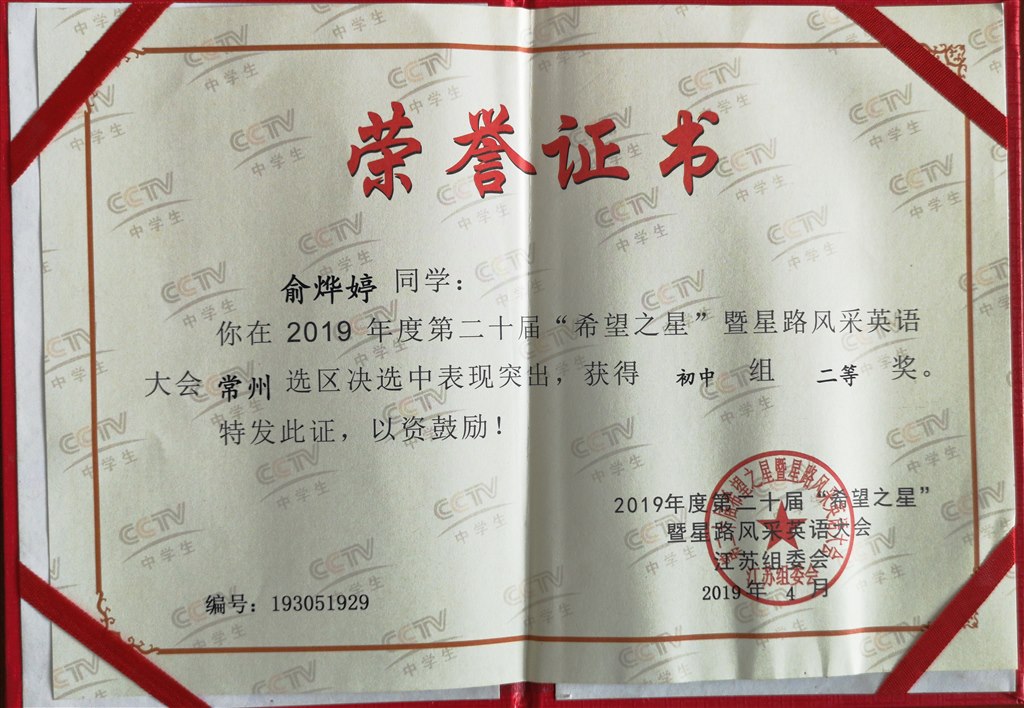 荣誉证书
俞烨婷 同学：
你在 2019 年度第二十届“希望之星”暨星路风采英语
大会 常州 选区决选中表现突出，获得 初中 组 二等 奖。
特发此证，以资鼓励！
2019年度第二十届“希望之星”
暨星路风采英语大会
江苏组委会
2019 年 4 月
江苏组委会
编号：193051929
CCTV
中学生